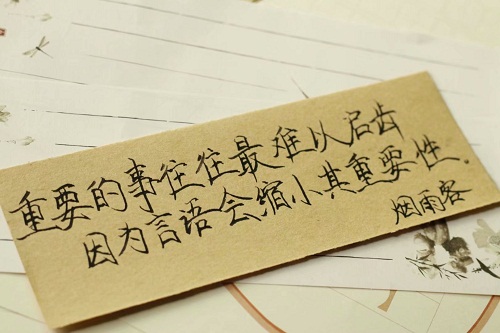 重要的事往往最难以启齿
因为言语会缩小其重要性.
烟雨客